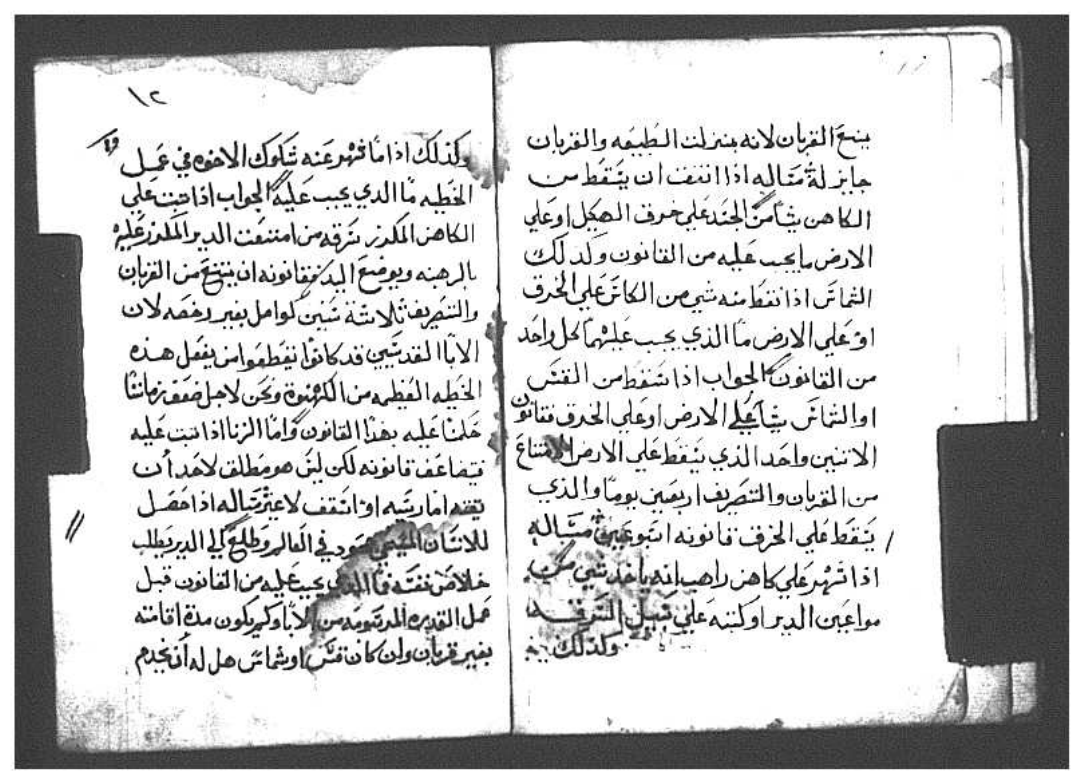 يمنع القربان لانه بمنزلت الطبيعه والقربان
جايز له مساله اذا اتفق ان يسقط من
الكاهن شيا من الجسد علي خرق الهيكل او علي
الارض ما يجب عليه من القانون وكذلك
الشماس اذا نقط منه شي من الكاس علي الخرق
او علي الارض ما الذي يجب عليهما كل واحد
من القانون الجواب اذا سقط من القس
او الشماس شيا علي الارض او علي الخرق فقانون
الاتنين واحد الذي يسقط علي الارض الامتناع
من القربان والتصريف اربعين يوما والذي
يسقط علي الخرق قانونه اسبوعين مساله
اذا شهر علي كاهن راهب انه ياخد شي من
مواعين الدير او كتبه علي سبيل السرقه
وكذلك
١٢
وكذلك اذا ما شهر عنه شكوك الاخوه في عمل
الخطيه ما الدي يجب عليه الجواب اذا تبت علي
الكاهن المكرز سرقه من امتنعت الدير المكرز عليه
بالرهبنه ويوضع اليد فقانونه ان يمتنع من القربان
والتصريف ثلاثة سنين كوامل بغير رخصه لان
الابا القديسين قد كانوا يقطعوا من يفعل هذه
الخطيه العظيمه من الكهنوة ونحن لاجل ضعف زماننا
حكمنا عليه بهذا القانون واما الزنا اذا تبت عليه
فيضاعف قانونه لكن ليس هو مطلق لاحد ان
يقفه اما ريسه او اسقف لا غير مساله اذا حصل
للانسان المسيحي في العالم وطلع الي الدير يطلب
خلاص نفسه فما الدي يجب عليه من القانون قبل
عمل القديره المرسومه من الابا وكم يكون مدة اقامته
بغير قربان وان كان قس او شماس هل له ان يخدم